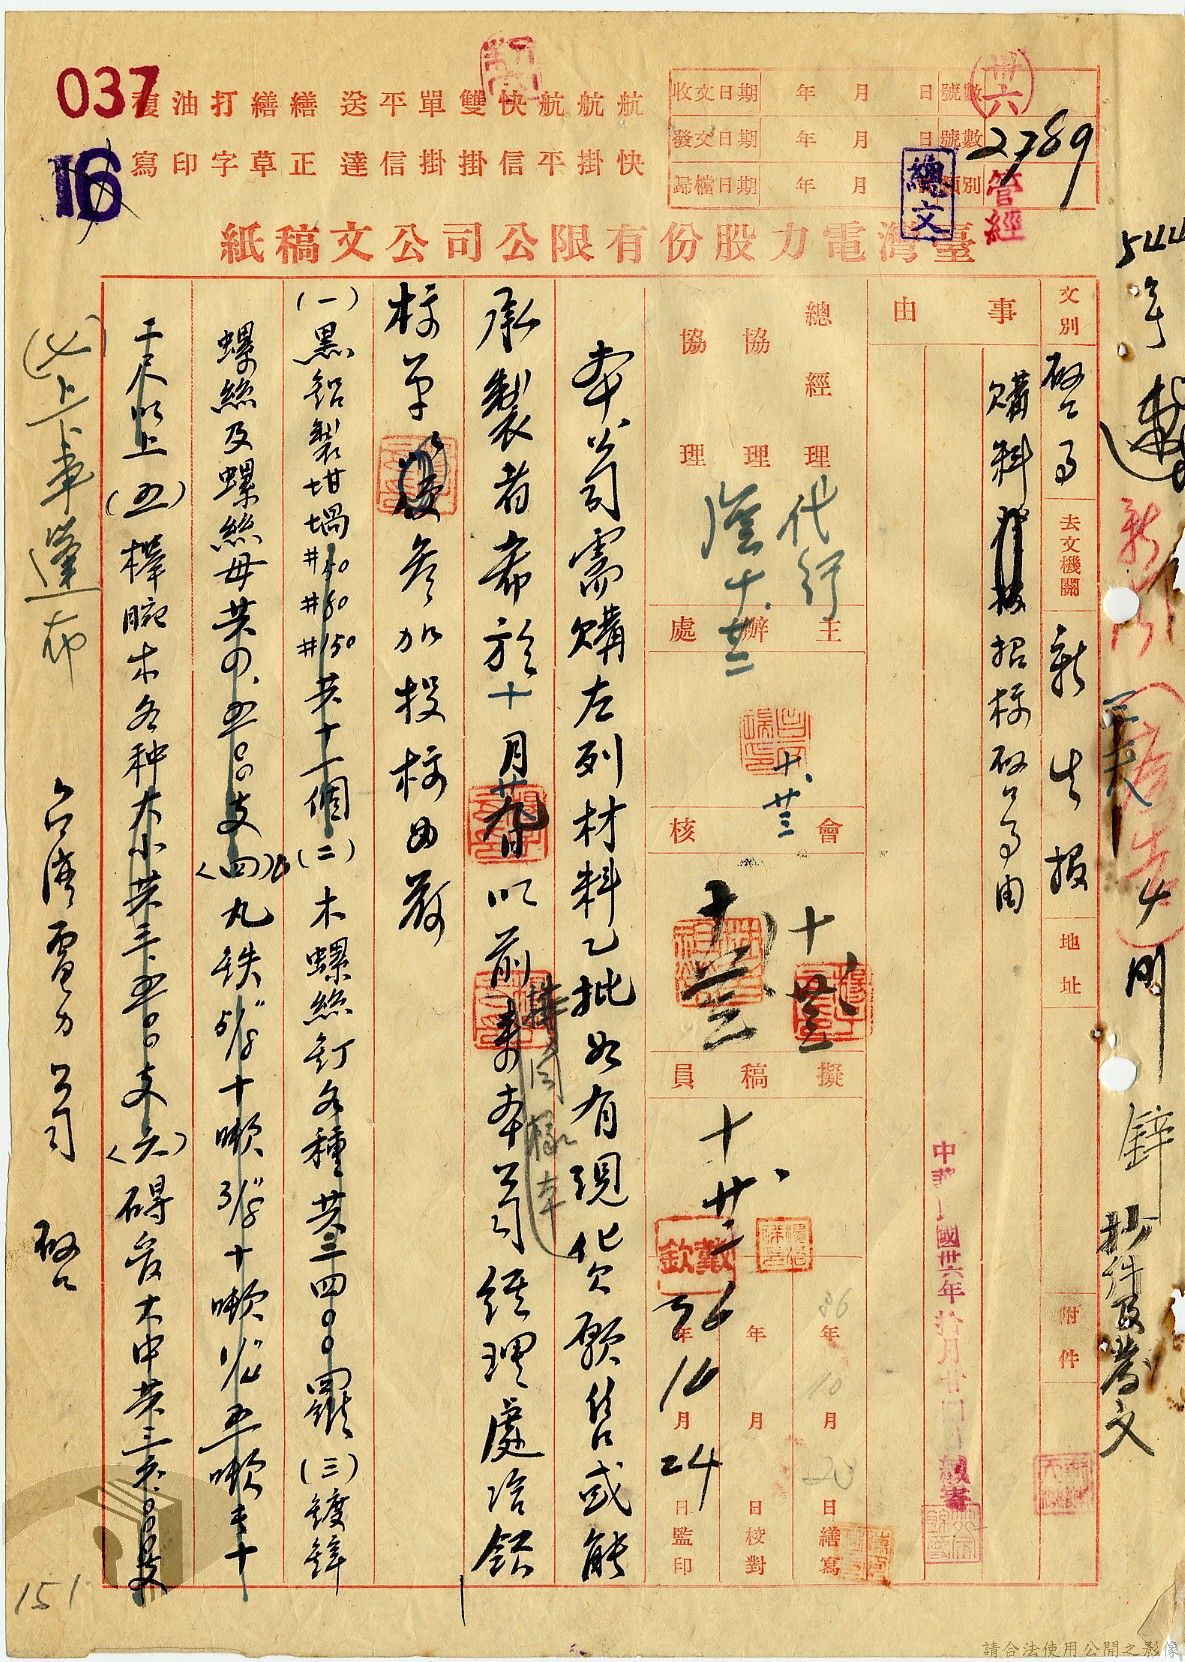 037
16
航 航 航 快 雙 單 平 送 繕 繕 打 油 複
快 掛 平 信 掛 掛 信 達 正 草 字 印 寫
收文日期 年 月 日 號數
發文日期 年 月 日 號數
歸檔日期 年 月 類別
卅六
2789
管經
總文
臺灣電力股份有限公司文稿紙
文別 啓事 去文機關 新生報 地址 附件
事由
購料招標啓事由
總經理 代行
協理
協理
主辦處
會核
擬稿員
36年10月20日繕寫
年 月 日校對
36年10月24日監印
中華民國卅六年拾月廿 日
戴欽
本公司需購左列材料乙批如有現貨願售或能
承製者希於十月廿九日以前來本公司經理處洽領
標單後參加投標由啟
(一)黑鉛製坩堝#40 #80 #150共十一個(二)木螺絲釘各種共三四00羅(三)鍍鋅
螺絲及螺絲母共四、五00支(四)丸鉄5/8"十噸3/8"十噸1/2"五噸
二尺以上(五)櫸腕木各種大小共三、五00支(六)碍管大中共三、000支
(七)上下車蓬布
台灣電力公司 啓
鋅 抄件及發文
151
請合法使用公開之影像